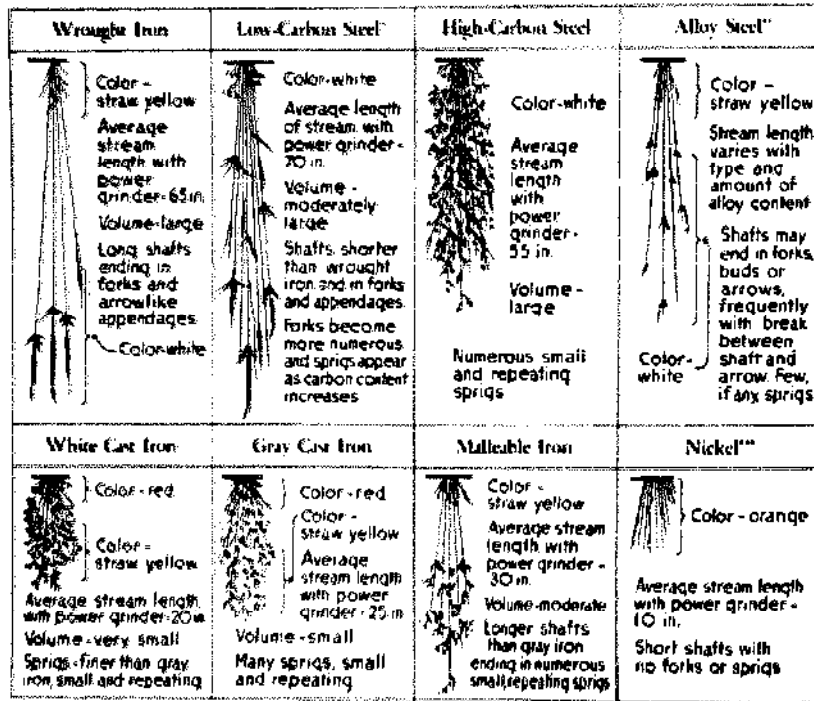 Wrought Iron
Color-
straw yellow
Average
stream
length with
power
grinder-65in.
Volume-large
Long shafts
ending in
forks and
arrowlike
appendages
Color-white
Low-Carbon Steel*
Color-white
Average length
of stream with
power grinder-
70 in.
Volume-
moderately
large
Shafts shorter
than wrought
iron and in forks
and appendages
Forks become
more numerous
and sprigs appear
as carbon content
increases
High-Carbon Steel
Color-white
Average
stream
length
with
power
grinder-
55 in.
Volume-
large
Numerous small
and repeating
sprigs
Alloy Steel**
Color-
straw yellow
Stream length
varies with
type and
amount of
alloy content
Shafts may
end in forks,
buds or
arrows,
frequently
with break
between
shaft and
arrow. Few,
if any sprigs
Color-
white
White Cast Iron
Color-red
Color-
straw yellow
Average stream length
with power grinder-20 in
Volume-very small
Sprigs-finer than gray
iron, small and repeating
Gray Cast Iron
Color-red
Color-
straw yellow
Average
stream length
with power
grinder-25 in
Volume-small
Many sprigs, small
and repeating
Malleable Iron
Color-
straw yellow
Average stream
length with
power grinder-
30 in.
Volume-moderate
Longer shafts
than gray iron
ending in numerous
small, repeating sprigs
Nickel***
Color-orange
Average stream length
with power grinder-
10 in.
Short shafts with
no forks or sprigs